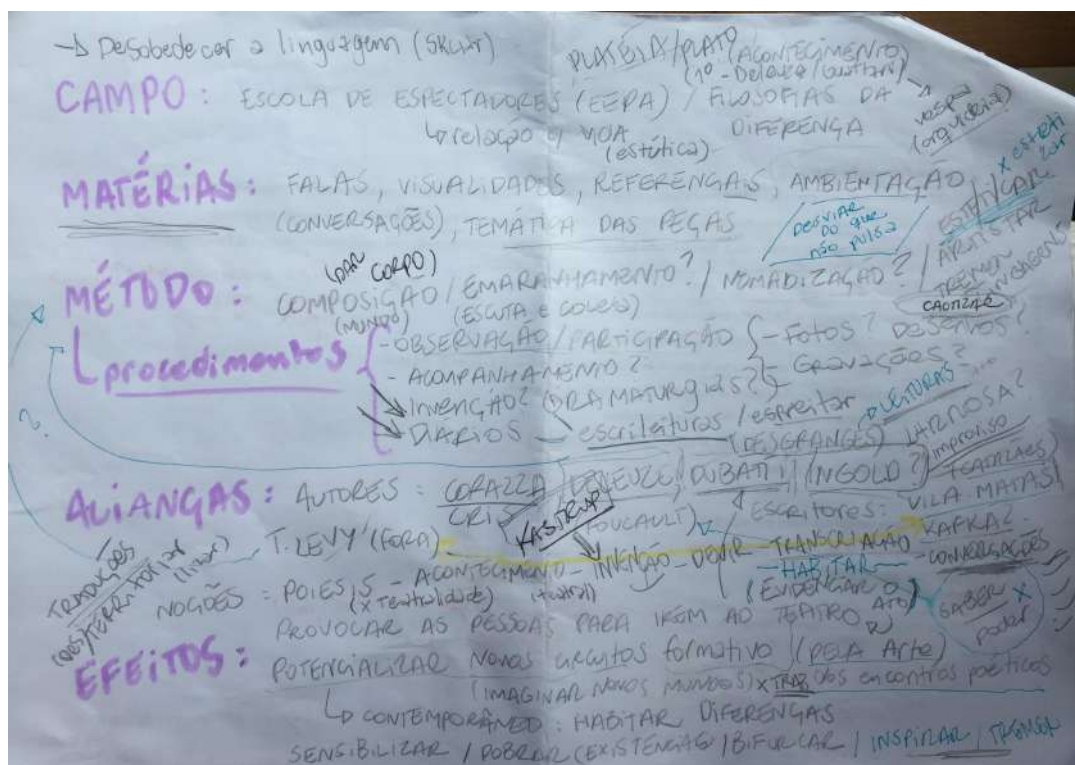 → Desobedecer a linguagem (SKLiar)
PLATEIA/PLATÔ (ACONTECIMENTO)
(1º - Deleuze/Guattari)
vespa
(orquídeia)
CAMPO: ESCOLA DE ESPECTADORES (EEPA) / FILOSOFIAS DA
DIFERENÇA
↳ relação c/ VIDA
(estética)
MATÉRIAS: FALAS, VISUALIDADES, REFERENCIAIS, AMBIENTAÇÃO,
(CONVERSAÇÕES), TEMÁTICA DAS PEÇAS
DESVIAR
DO que
não pulsa
X esteti
zar
ESTETICAR
ARTISTAR
TREMOR
CAOTIZAR
(DAR CORPO)
MÉTODO: COMPOSIÇÃO / EMARANHAMENTO? / NOMADIZAÇÃO? /
(MUNDO) (ESCUTA E COLETA)
procedimentos { - OBSERVAÇÃO / PARTICIPAÇÃO { - Fotos? Desenhos?
- ACOMPANHAMENTO? - Gravações?
INVENÇÃO? (DRAMATURGIAS?)
DIÁRIOS - escrileituras / espreitar
(DESGRANGES)
LARROSA?
improviso
?
ALIANÇAS: AUTORES: CORAZZA, DELEUZE, DUBATTI, (INGOLD?)
CRIS
KASTRUP
(FOUCAULT)
Escritores:
VILA-MATAS
KAFKA?
T. LEVY (FORA)
TRADUÇÕES
(DES)TERRITORIALIZAR
NOÇÕES: POIESIS - ACONTECIMENTO - INVENÇÃO - DEVIR - TRANSCRIAÇÃO - CONVERSAÇÕES
(X Teatralidade) (teatral)
- HABITAR
(EVIDENCIAR O ATO)
SABER X
poder
PROVOCAR AS PESSOAS PARA IREM AO TEATRO
EFEITOS: POTENCIALIZAR NOVOS circuitos formativo (PELA Arte)
(IMAGINAR NOVOS MUNDOS) dos encontros poéticos
↳ CONTEMPORÂNEO: HABITAR DIFERENÇAS
SENSIBILIZAR / DOBRAR (EXISTÊNCIAS) / BIFURCAR / INSPIRAR / TREMOR